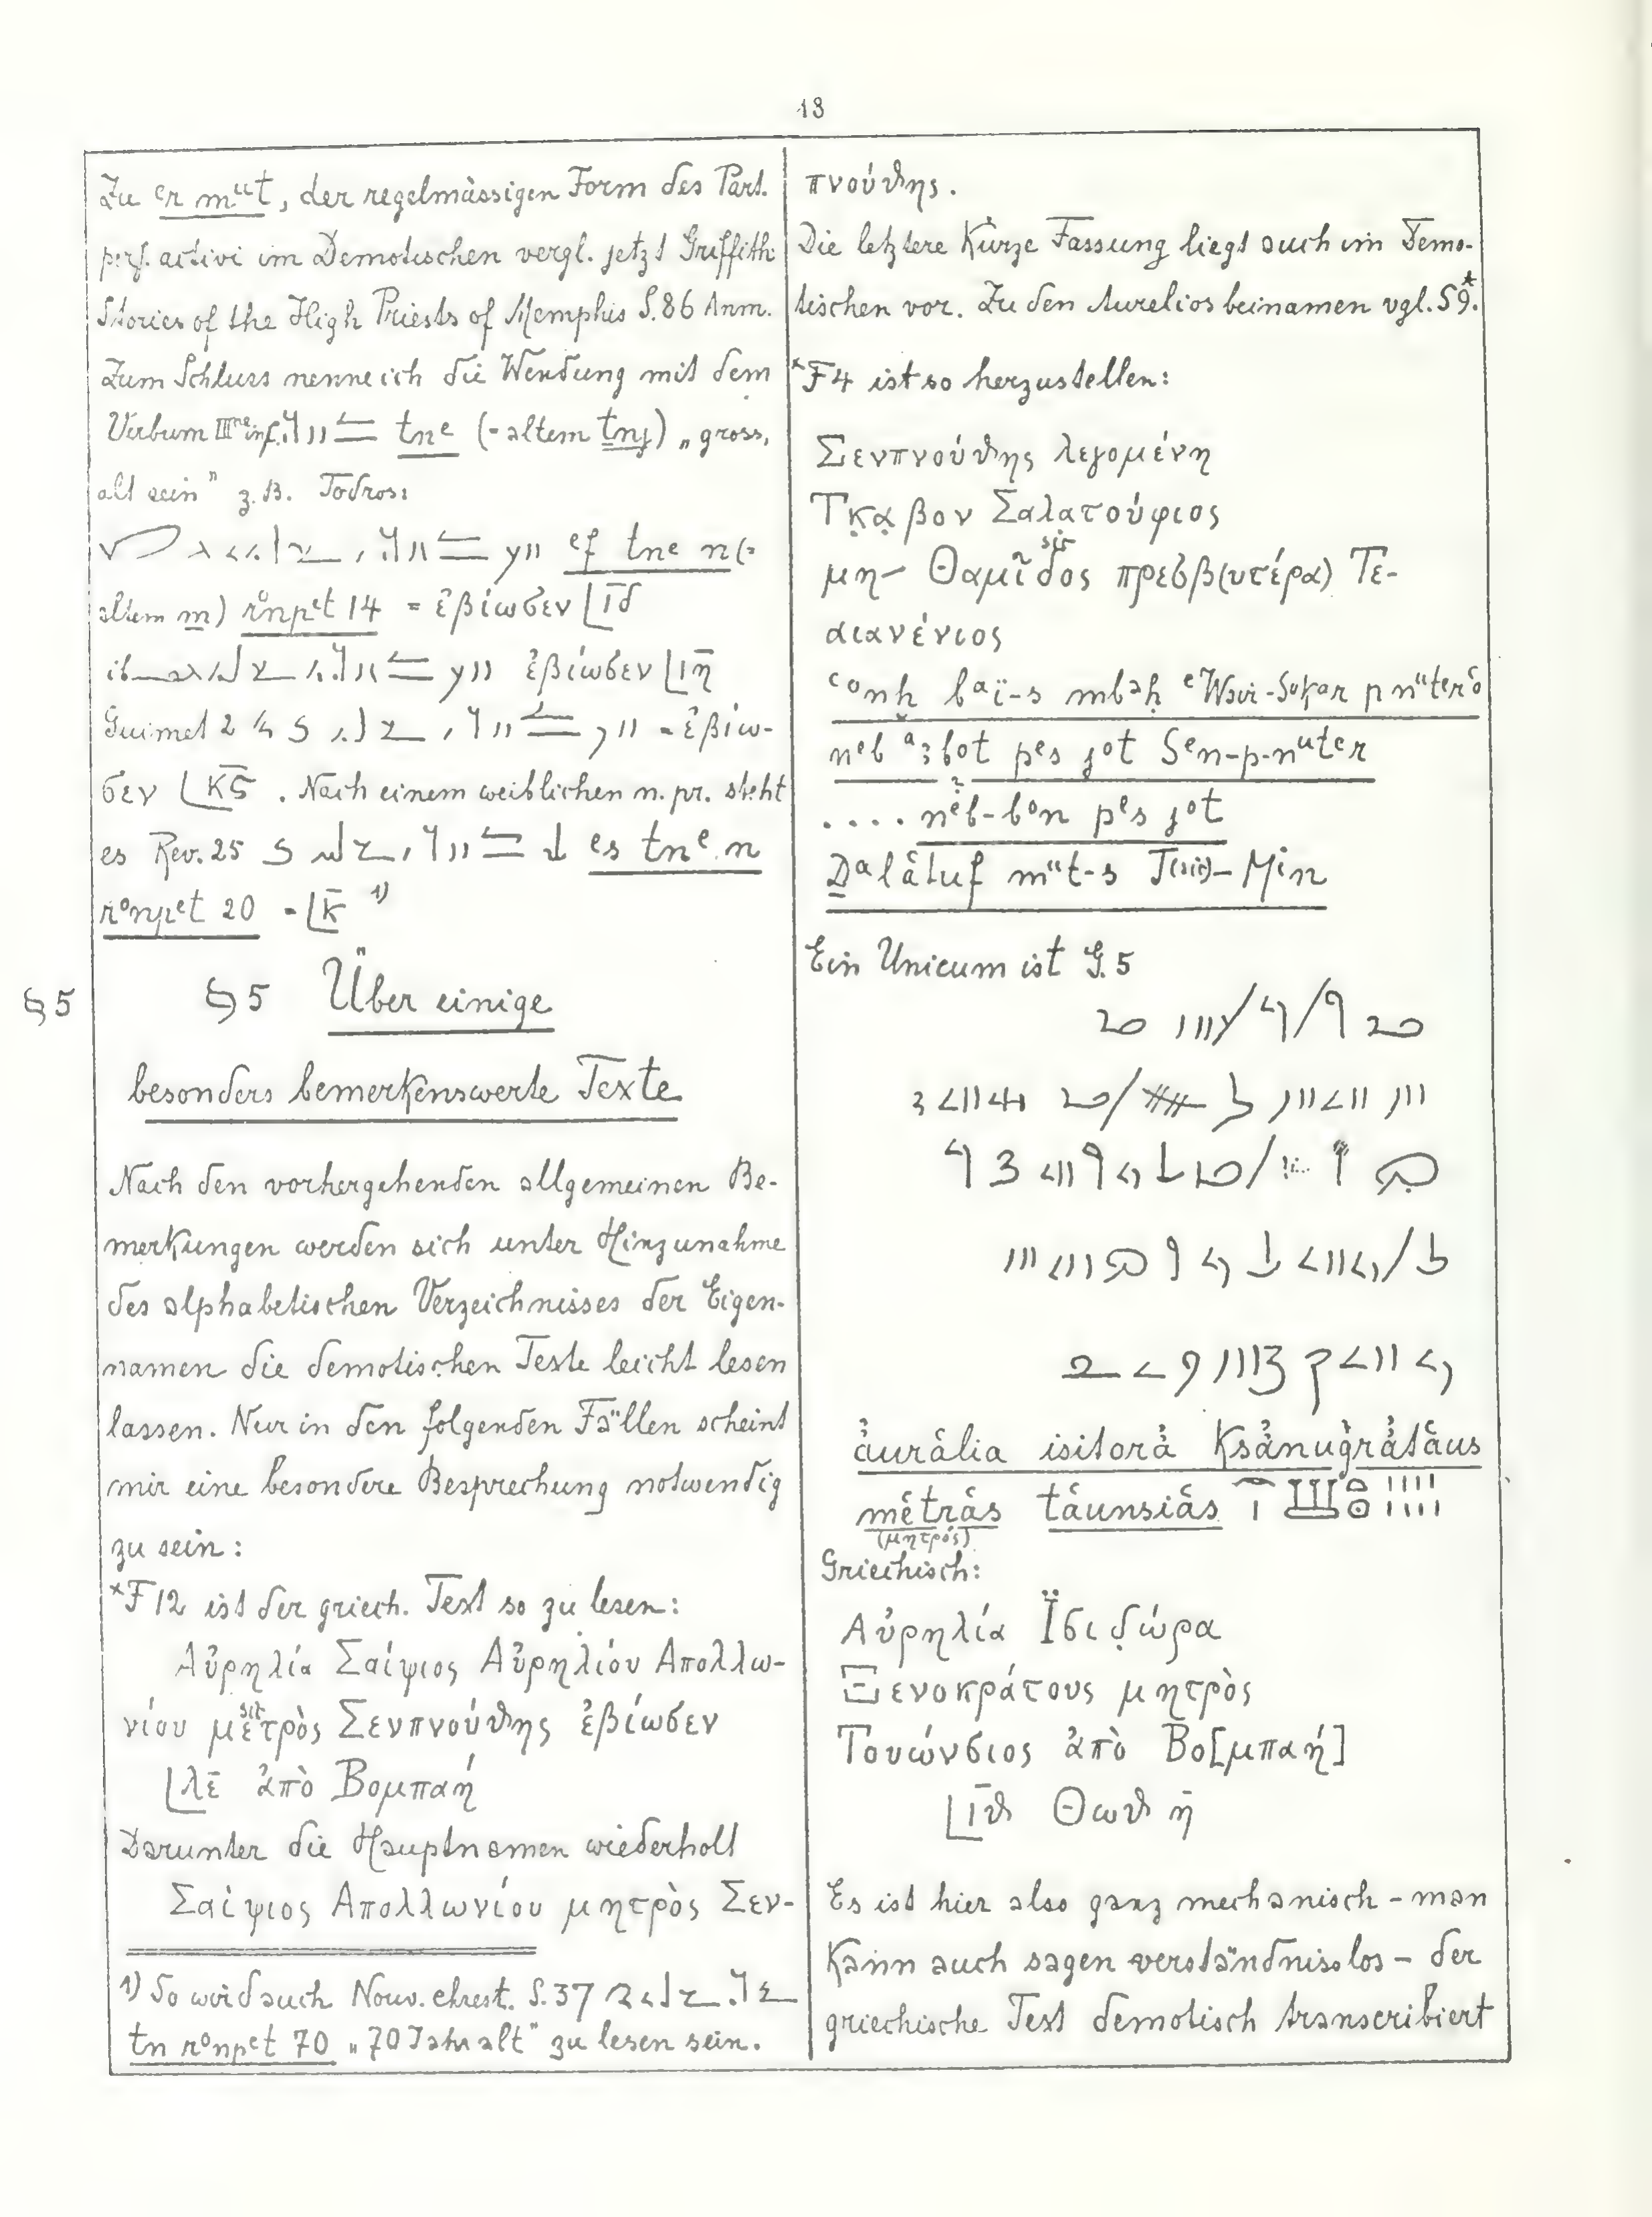 13
Zu er mut, der regelmässigen Form des Part.
perf. activi im Demotischen vergl. jetzt Griffith
Stories of the High Priests of Memphis S. 86 Anm.
Zum Schluss nenne ich die Wendung mit dem
Verbum III inf. tne (= altem tnj) „gross,
alt sein" z. B. Todros:
ef tne n (=
altem m) ronpet 14 = ἐβίωσεν L ῑδ
ἐβίωσεν L ῑη
Guimet 2 = ἐβίω-
σεν L κ̄ς . Nach einem weiblichen n. pr. steht
es Rev. 25 es tne n
ronpet 20 = L κ̄ 1)
§ 5
§ 5 Über einige
besonders bemerkenswerte Texte
Nach den vorhergehenden allgemeinen Be-
merkungen werden sich unter Hinzunahme
des alphabetischen Verzeichnisses der Eigen-
namen die demotischen Texte leicht lesen
lassen. Nur in den folgenden Fällen scheint
mir eine besondere Besprechung notwendig
zu sein:
*F 12 ist der griech. Text so zu lesen:
Αὐρηλία Σαίψιος Αὐρηλίου Απολλω-
νίου μετρὸς Σενπνούθης ἐβίωσεν
L λε ἀπὸ Βομπαή
Darunter die Hauptnamen wiederholt
Σαίψιος Απολλωνίου μητρὸς Σεν-
1) So wird auch Nouv. chrest. S. 37
tn ronpet 70 „70 Jahr alt" zu lesen sein.
πνούθης.
Die letztere kürze Fassung liegt auch im Demo-
tischen vor. Zu den Aurelios beinamen vgl. S 9.*
*F 4 ist so herzustellen:
Σενπνούθης λεγομένη
Τκαβον Σαλατούφιος
μη- Θαμῖδος πρεσβ(υτέρα) Τε-
αιανένιος
conh baï-s mbah eWsir-Sokar p nuter o
neb abot pes jot Sen-p-nuter
.... neb-bon pes jot
Dalâtuf mut-s T(sic)-Min
Ein Unicum ist G. 5
àurâlia isitorà Ksànugràtâus
mêtrâs tâunsiâs
(μητρός)
Griechisch:
Αὐρηλία Ϊσιδώρα
Ξενοκράτους μητρὸς
Τουώνσιος ἀπὸ Βο[μπαή]
L ῑθ Θωθ η̄
Es ist hier also ganz mechanisch - man
kann auch sagen verständnislos - der
griechische Text demotisch transcribiert